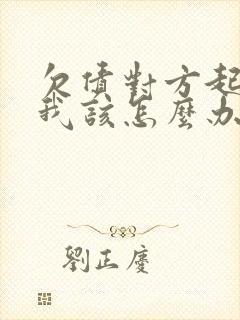 欠債對方起
我該怎麼办
劉正慶